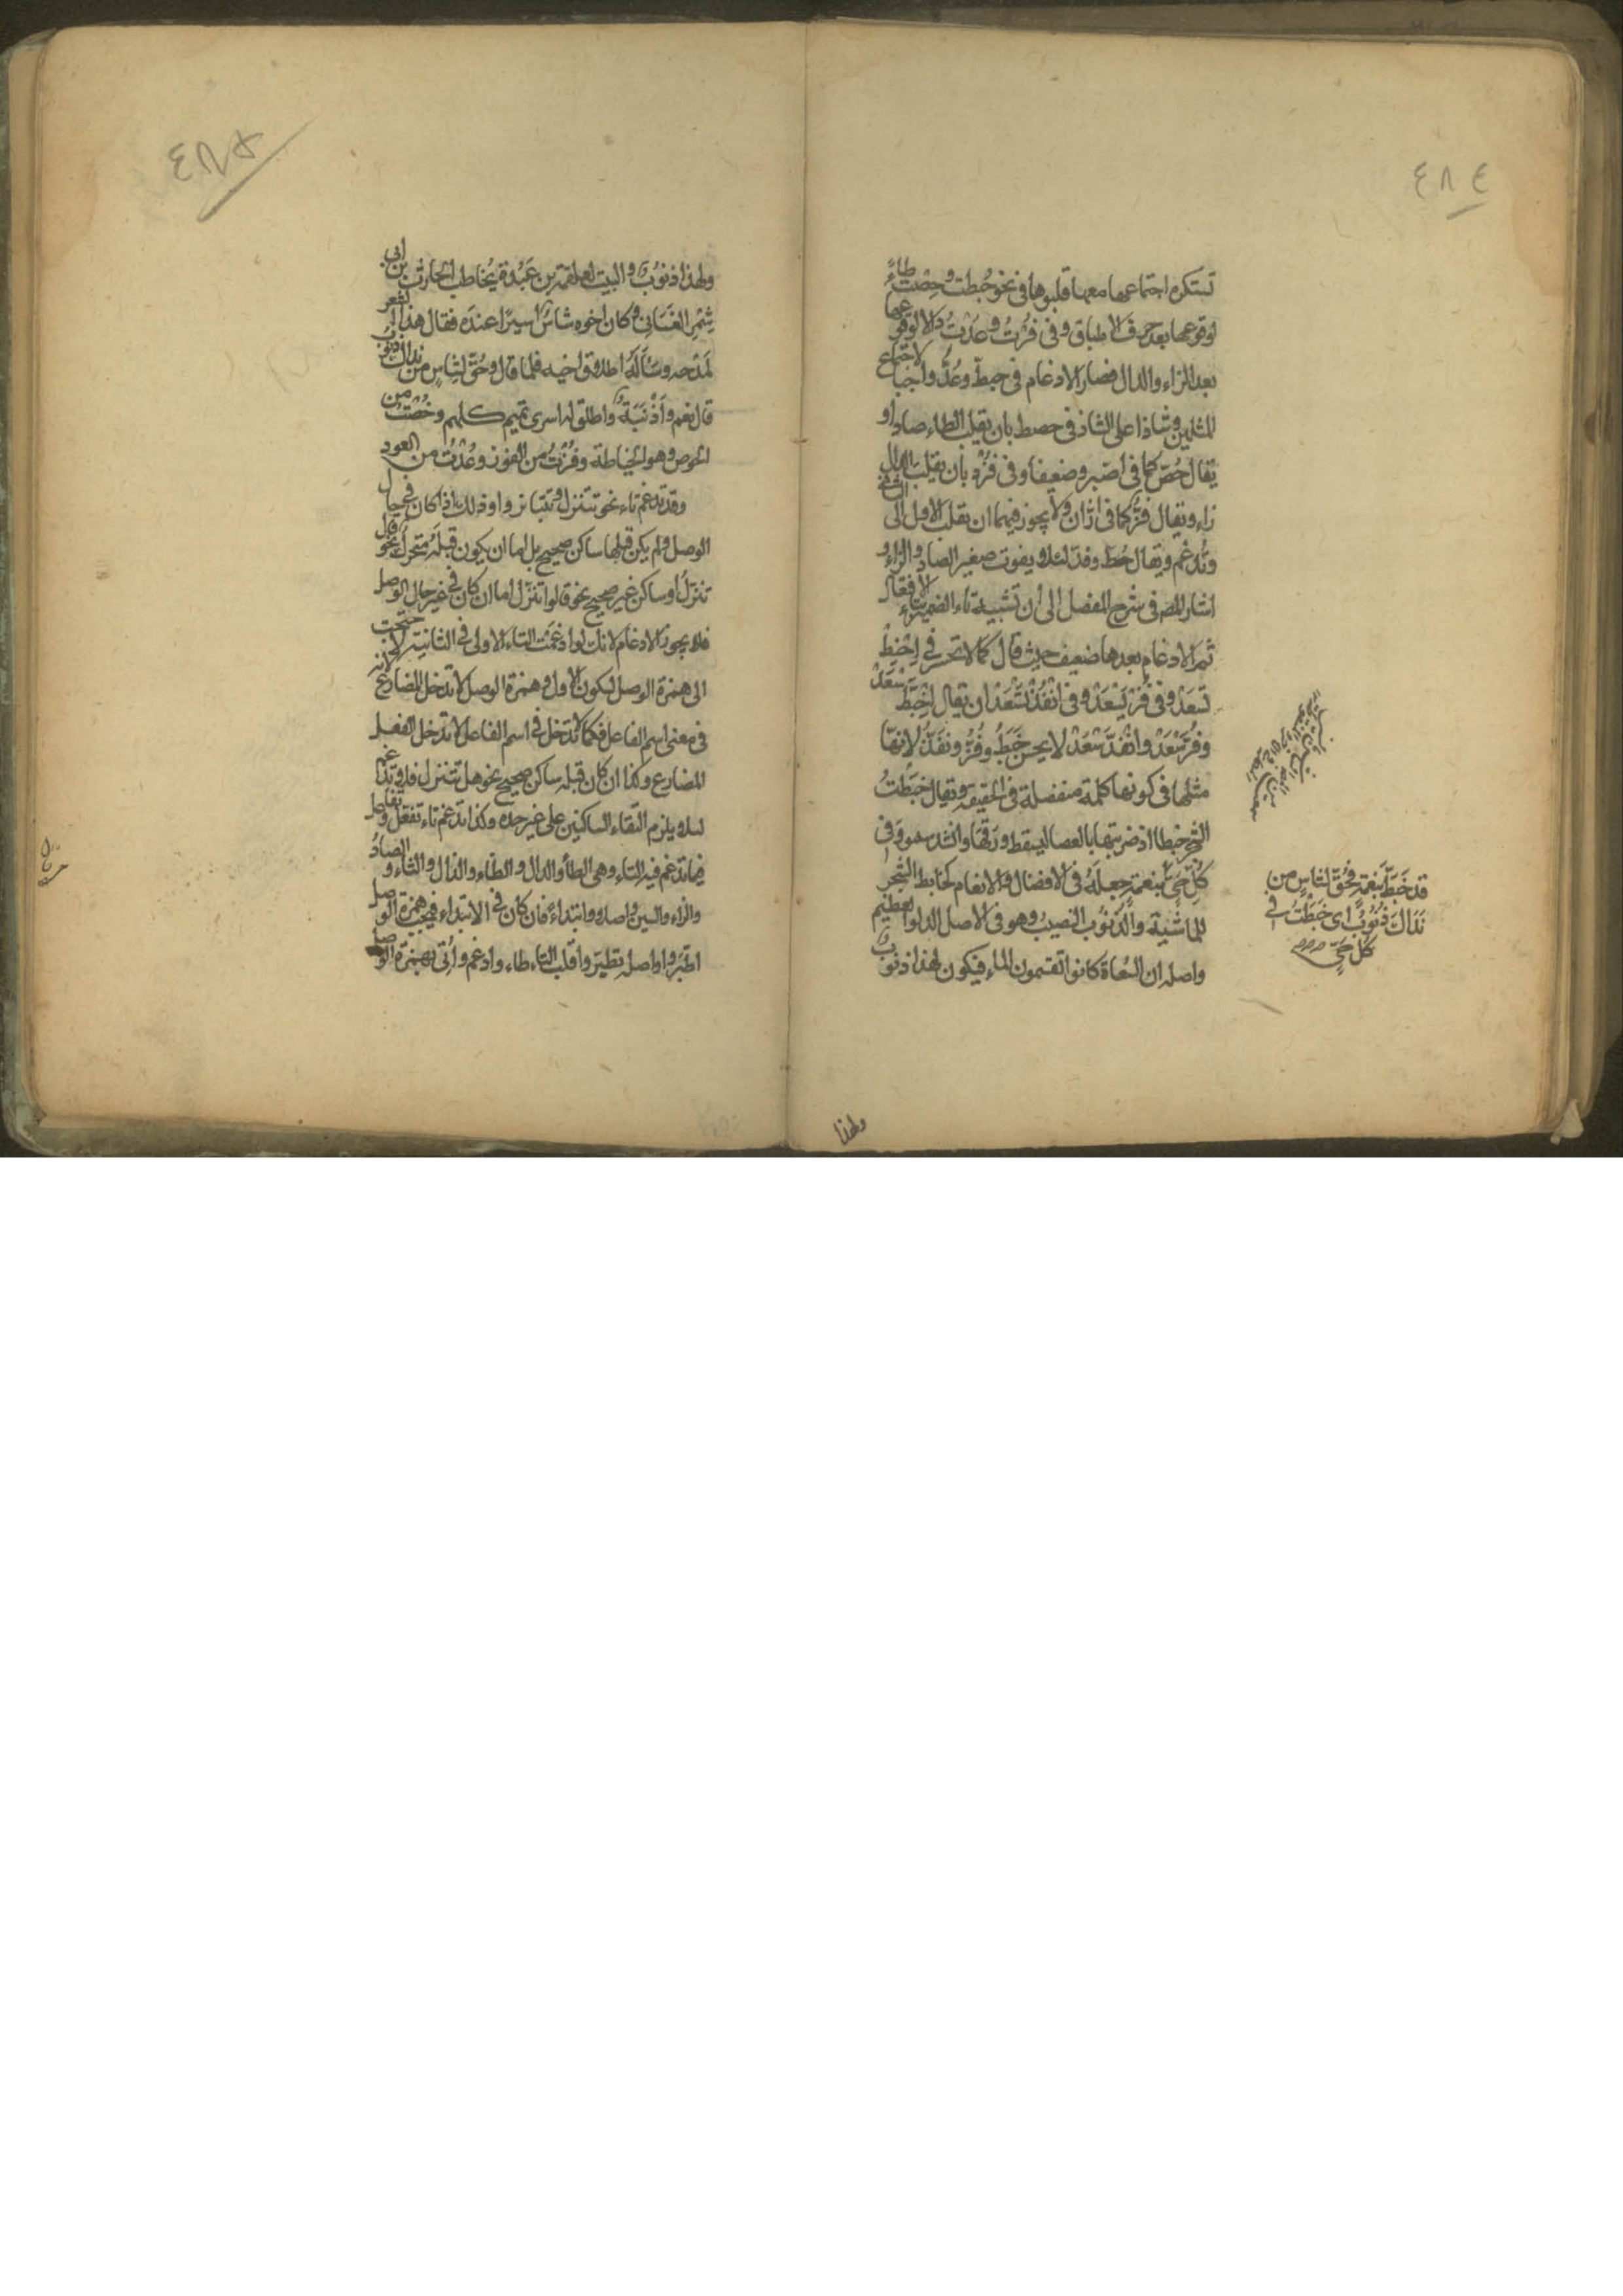 ٤٨٤
تستكره اجتماعها معها قلبوها في نحو خبطت وحصت طاءً
لوقوعها بعد حرف الاطباق وفي فزت وعدت دالا لوقوعها
بعد الزاء والدال فصار الادغام في خبط وعد واجبا لاجتماع
المثلين وشاذا على الشاذ في حصط بان يقلب الطاء صادا و
يقال حص كما في اصبر وضعيفا وفي فزد بان يقلب الدال
زاء ويقال فز كما في ازان ولا يجوز فيهما ان يقلب الاول الى الثاني
وتدغم ويقال حط وفد لئلا يفوت صفير الصاد والزاء و
اشار المص في شرح المفصل الى ان تشبيه تاء الضمير بتاء الافتعال
ثم الادغام بعدها ضعيف حيث قال كما لا تحسن في احفظ
تسعد وفي فز تسعد وفي انقذ تسعد ان يقال
وفز سعد وانقد سعد لا يحسن خبط وفز ونقد لانها
مثلها في كونها كلمة منفصلة في الحقيقة ويقال خبطت
الشجر خبطا اذ ضربتها بالعصا ليسقط ورقها وانشد س وفي
كل حي بنعمة جعله في الافضال والانعام كخابط الشجر
للماشية والذنوب النصيب وهو في الاصل الدلو العظيم
واصله ان السقاة كانوا تقسمون الماء فيكون لهذا ذنوب
قد خبط بنعمة فحق لشاس من
نداك ذنوب اى خبطت في
كل حي
ولهذا
٤٨٥
ولهذا ذنوب والبيت لعلقمة بن عبدة يخاطب الحارث بن ابى
شمر الغساني وكان اخوه شاس اسيرا عنده فقال هذا الشعر
لمدحه وسأله اطلاق اخيه فلما قال وحق لشاس من نداك ذنوب
قال نعم واذنبة واطلق له اسرى تميم كلهم وخصت من
الخوص وهو الخياطة وفزت من الفوز وعدت من العود
وقد تدغم تاء نحو تتنزل وتتنابزوا وذلك اذا كان في حال
الوصل ولم يكن قبلها ساكن صحيح بل اما ان يكون قبله متحرك نحو قال
تنزل او ساكن غير صحيح نحو قالوا تنزل اما ان كان في غير حال الوصل
فلا يجوز الادغام لانك لو ادغمت التاء الاولى في الثانية لاحتجت
الى همزة الوصل لسكون الاول وهمزة الوصل لا تدخل المضارع لانه
في معنى اسم الفاعل فكما لا تدخل في اسم الفاعل لا تدخل الفعل
المضارع وكذا ان كان قبله ساكن صحيح نحو هل تتنزل فلا تدغم
لئلا يلزم التقاء الساكنين على غير حده وكذا تدغم تاء تفعل وتفاعل
فيما تدغم فيه التاء وهي الطاء والدال والظاء والذال والثاء والصاد
والزاء والسين وصلا وابتداءً فان كان في الابتداء فيجب همزة الوصل
اطيروا واصله تطير واقلب التاء طاء وادغم واتى بهمزة الوصل